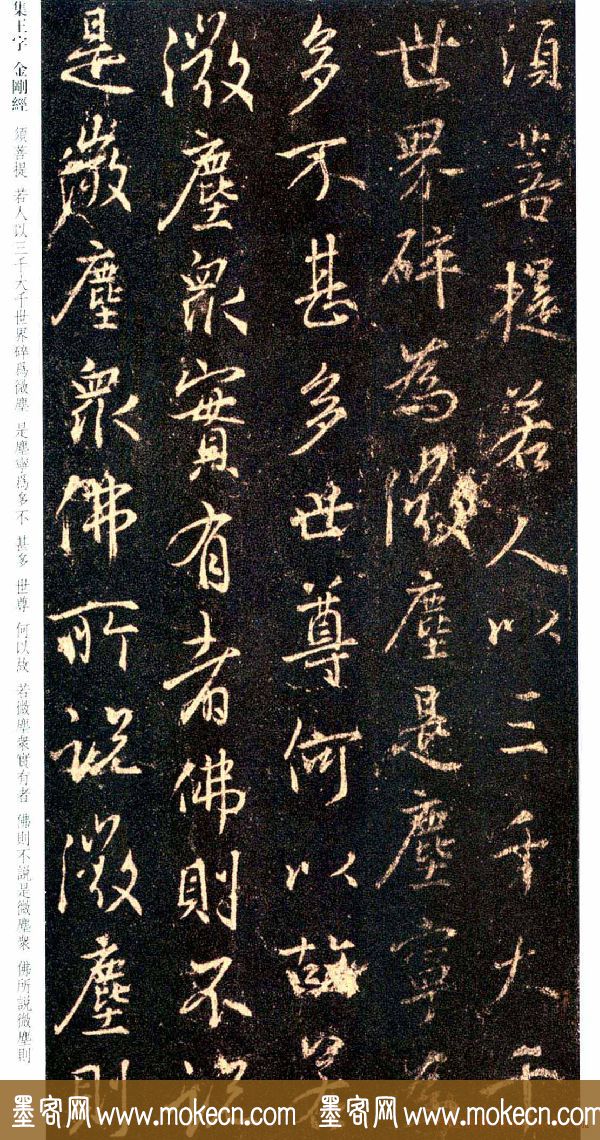 須菩提若人以三千大千
世界碎為微塵是塵寧為
多不甚多世尊何以故若
微塵眾實有者佛則不說
是微塵眾佛所說微塵則
集王字 金剛經 須菩提 若人以三千大千世界碎爲微塵 是塵寧爲多不 甚多 世尊 何以故 若微塵衆實有者 佛則不說是微塵衆 佛所說微塵則
墨客网 www.mokecn.com 墨客网 www.mokecn.com